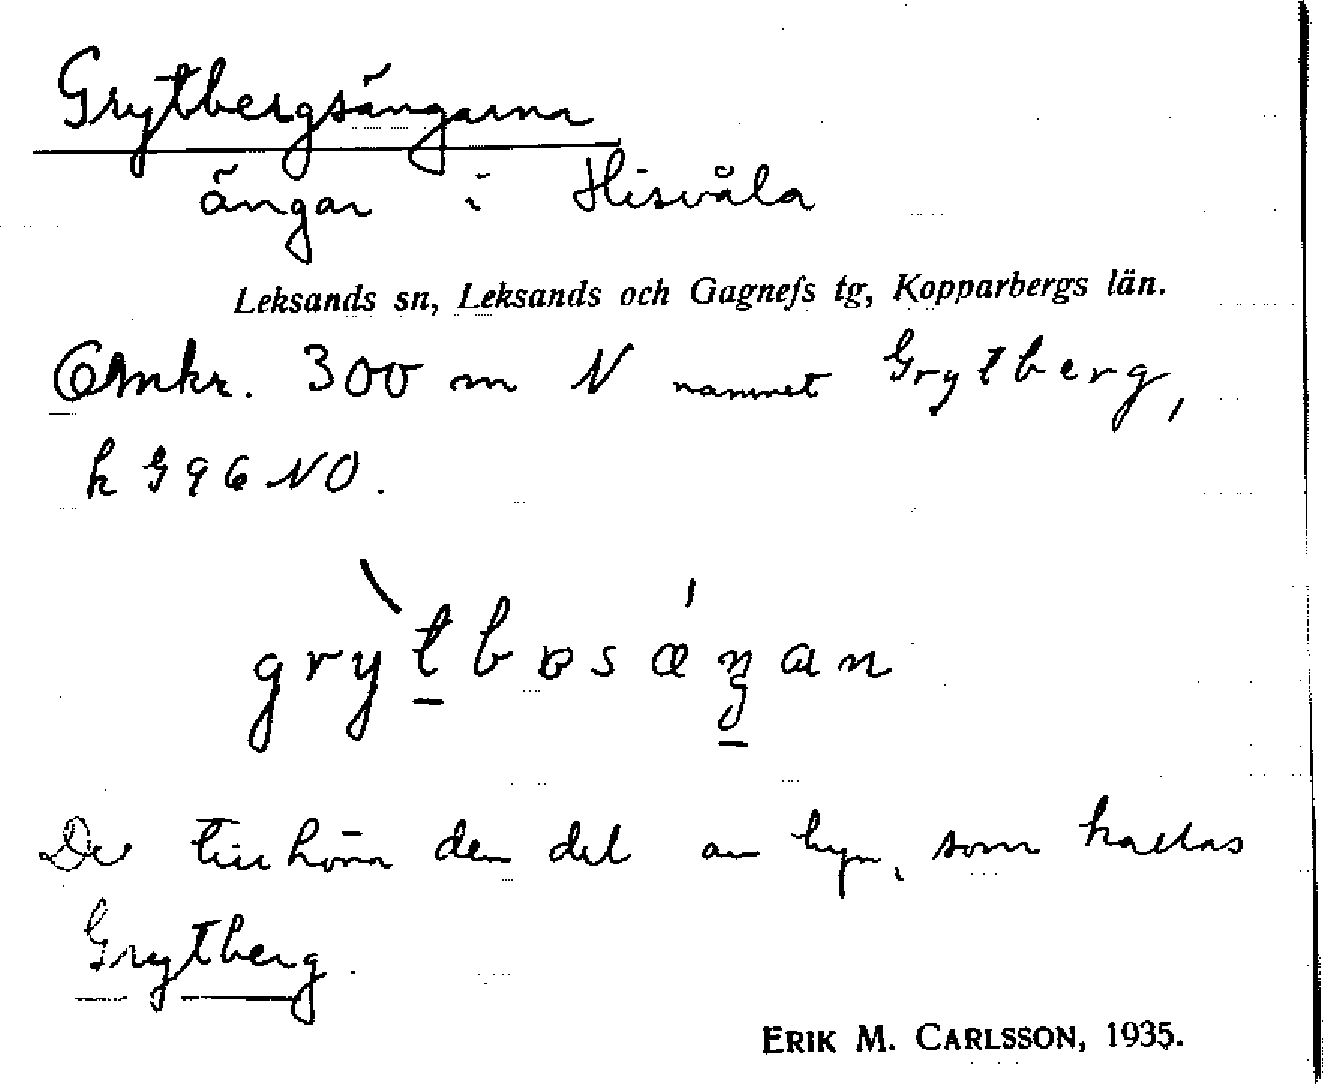 Grytbergsängarna
ängar i Hisvåla
Leksands sn, Leksands och Gagnefs tg, Kopparbergs län.
Omkr. 300 m N namnet Grytberg,
k 996 NO.
De tillhöra den del av byn, som kallas
Grytberg.
ERIK M. CARLSSON, 1935.